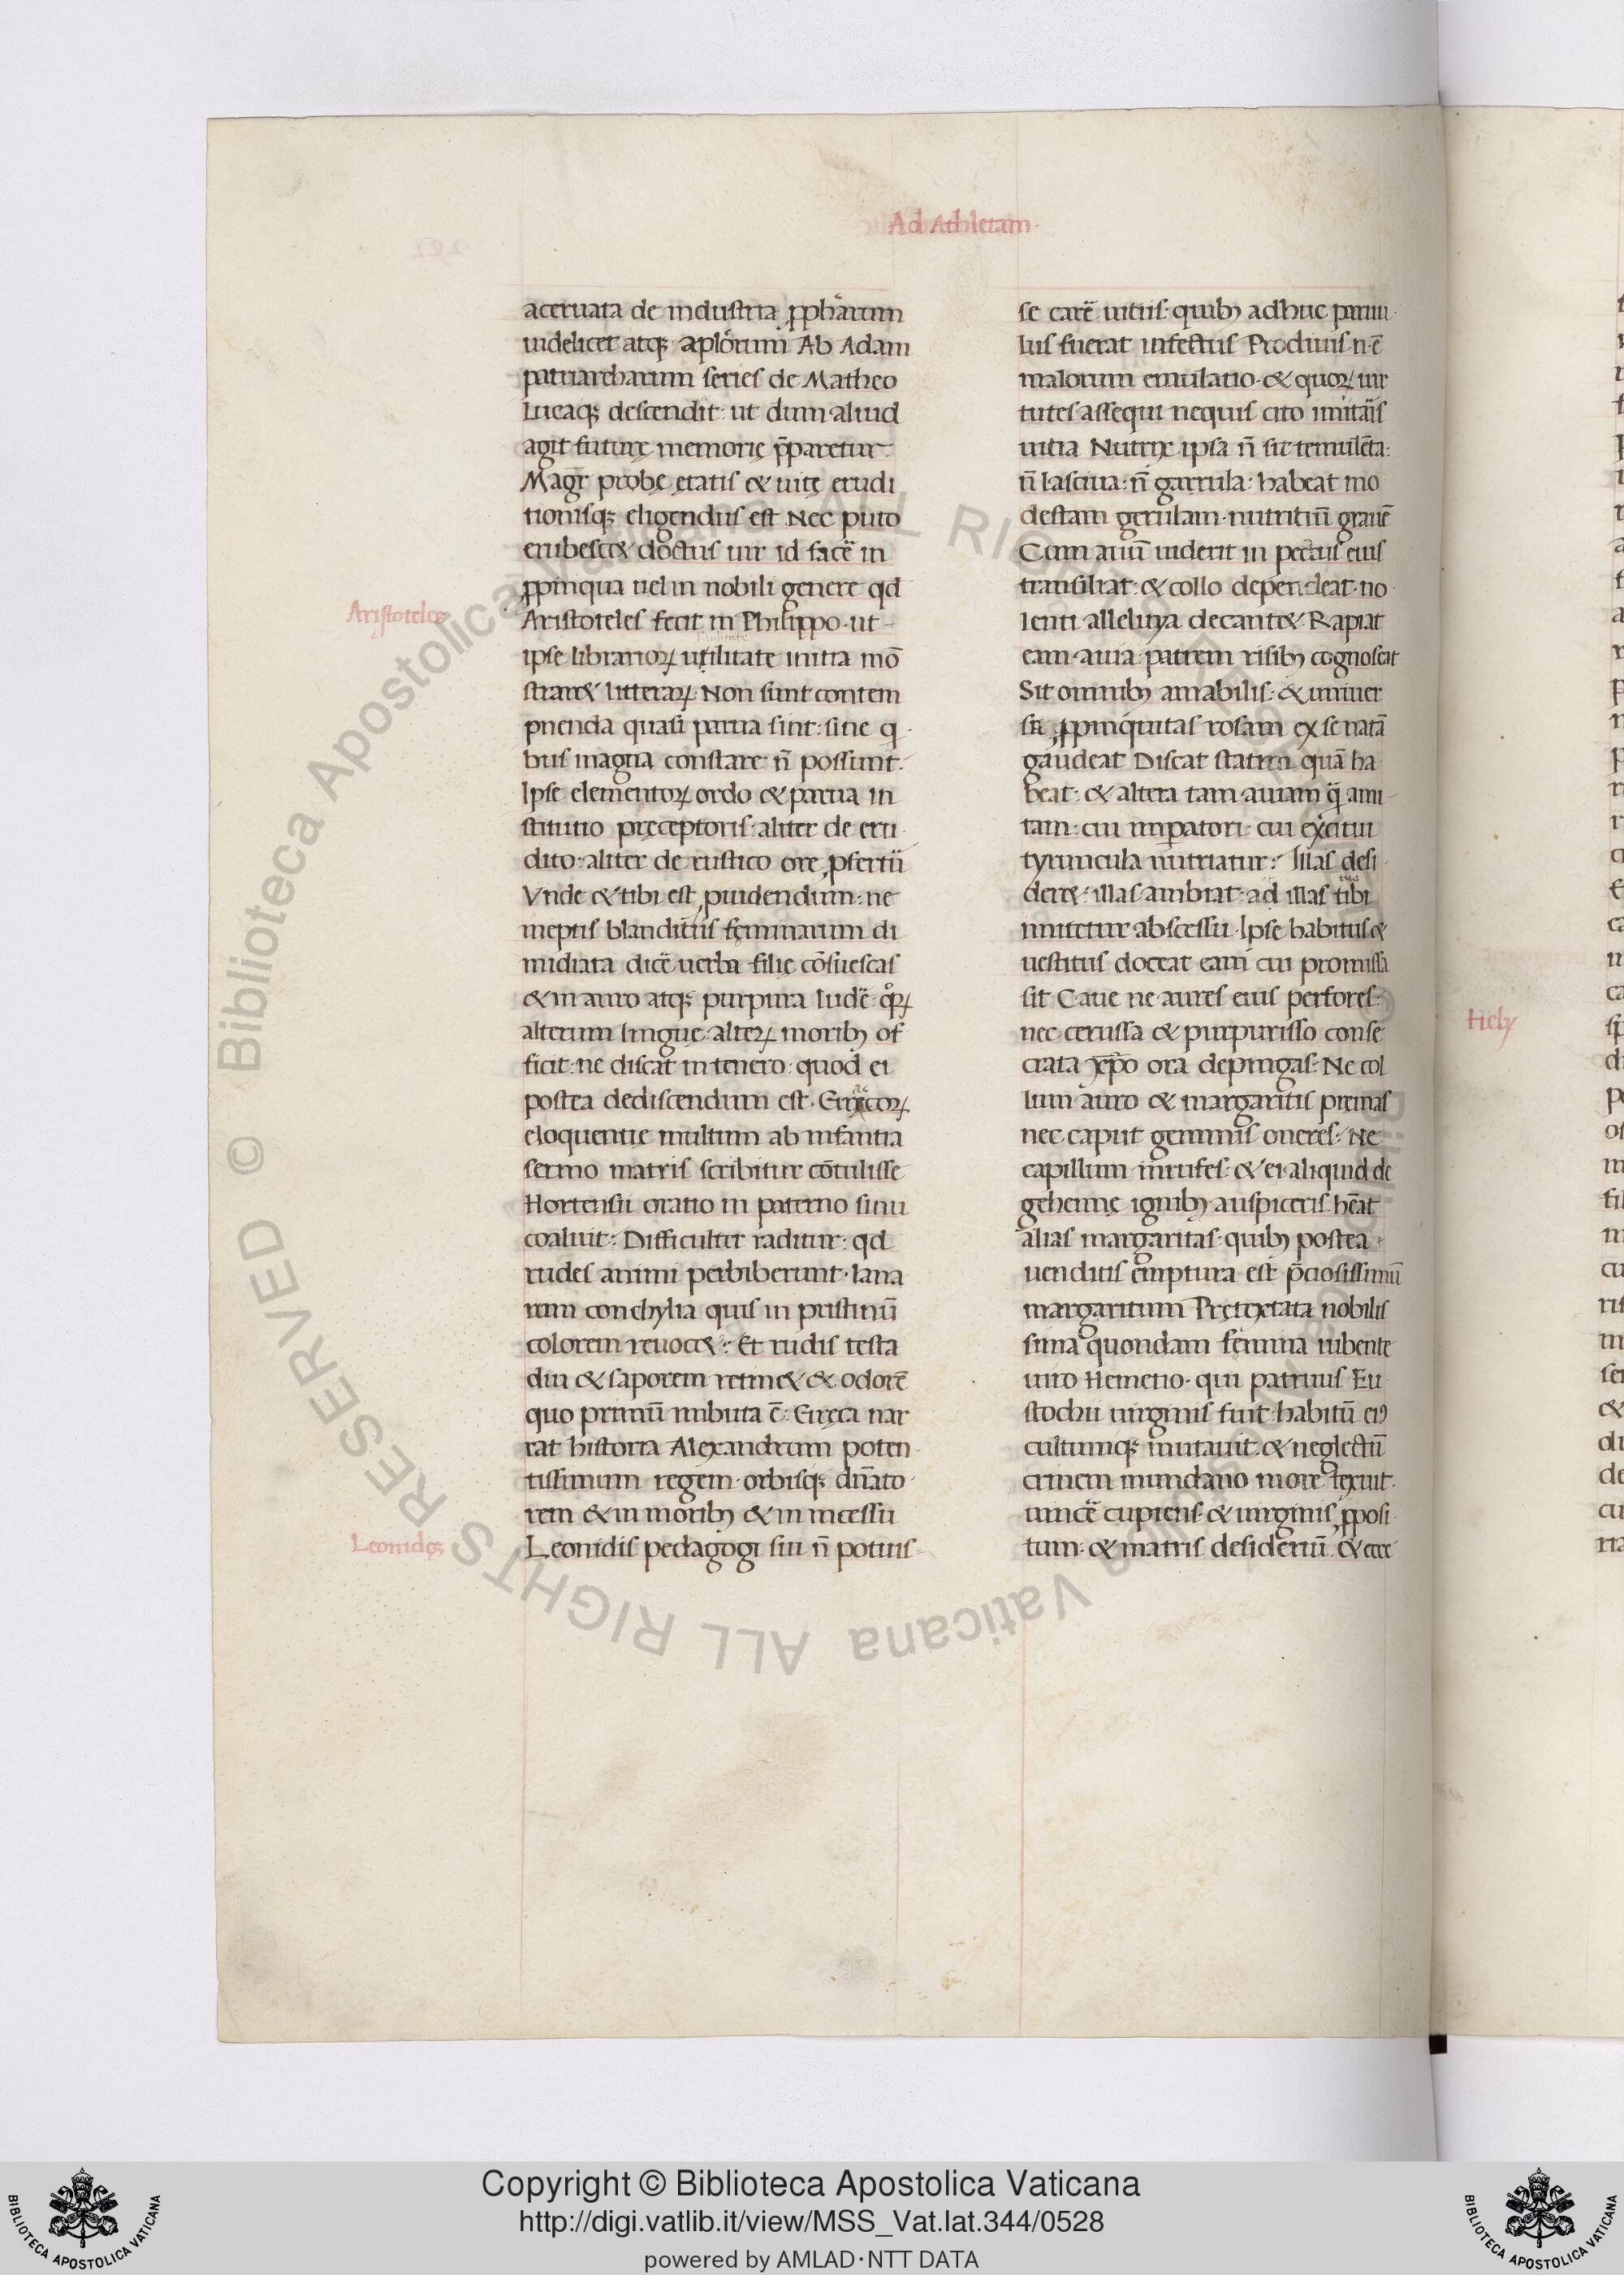 Ad Athletam·
aceruata de industria ꝓphãrum
uidelicet atqꝫ aplõrum Ab Adam
patriarcharum series de Matheo
Lucaqꝫ descendit: ut dum aliud
agit futurę memorię p̃paretur
Magr̃ probę ętatis & uitę erudi
tionisqꝫ eligendus est Nec puto
erubescet doctus uir id facẽ in
ꝓpinqua uel in nobili genere qd
Aristoteles
Aristoteles fecit in Philippo· ut
ipse librarioꝝ utilitate initia mõ
straret litteraꝝ· Non sunt contem
pnenda quasi parua sint: sine q
bus magna constare ñ possunt·
Ipse elementoꝝ ordo & parua in
stitutio pręceptoris: aliter de eru
dito: aliter de rustico ore ꝓfertũ
Vnde & tibi est ꝓuidendum: ne
ineptis blanditiis fęminarum di
midiata dicẽ uerba filię cõsuescas
& in auro atqꝫ purpura ludẽ· qoꝝ
alterum linguę· alteꝝ moribꝫ of
ficit: ne discat in tenero· quod ei
postea dediscendum est·
eloquentie multum ab infantia
sermo matris scribitur cõtulisse
Hortensii oratio in paterno sinu
coaluit: Difficulter raditur: qd
rudes animi perbiberunt· lana
rum conchylia quis in pristinũ
colorem reuocet: Et rudis testa
diu & saporem retinet & odorẽ
quo primũ imbuta ẽ: Gręca nar
rat historia Alexandrum poten
tissimum regem· orbisqꝫ dñato
rem & in moribꝫ & in incessu
Leonidęs
Leonidis pedagogi sui ñ potuis
se carẽ uitiis: quibꝫ adhuc paruu
lus fuerat infectus Procliuis n· ẽ
malorum emulatio· & quoꝝ uir
tutes assequi nequis cito imitãis
uitia Nutrix ipsa ñ sit temulẽta:
ñ lasciua: ñ garrula: habeat mo
destam gerulam· nutritiũ grauẽ
Cum auũ uiderit in pectus eius
transiliat· & collo dependeat· no
lenti alleluya decantet· Rapiat
eam auia· patrem risibꝫ cognoscat
Sit omnibꝫ amabilis· & uniuer
sa ꝓpinquitas rosam ex se natã
gaudeat Discat statim quã ha
beat· & altera tam auiam q̃ ami
tam: cui imꝑatori· cui exercitui
tyruncula nutriatur: Illas desi
deret· illas ambiat· ad illas tibi
eius
minetur abscessu· Ipse habitus &
uestitus doceat eam cui promissa
sit Caue ne aures eius perfores:
nec cerussa & purpurisso conse
crata xp̃o ora depingas· Ne col
lum auro & margaritis premas
nec caput gemmis oneres· Ne
capillum inrufes· & ei aliquid de
gehennę ignibꝫ auspiceris· hẽat
alias margaritas· quibꝫ postea
uenditis emptura est p̃ciosissimũ
margaritum Pretextata nobilis
sima quondam fęmina iubente
uiro Hemetio· qui patruus Eu
stochii uirginis fuit· habitũ eiꝯ
cultumqꝫ mutauit· & neglectũ
crinem mundano more texuit·
uincẽ cupiens· & uirginis ꝓposi
tum· & matris desideriũ· & ecce
Hely
© Biblioteca Apostolica Vaticana ALL RIGHTS RESERVED
Copyright © Biblioteca Apostolica Vaticana
http://digi.vatlib.it/view/MSS_Vat.lat.344/0528
powered by AMLAD·NTT DATA
BIBLIOTECA APOSTOLICA VATICANA
BIBLIOTECA APOSTOLICA VATICANA